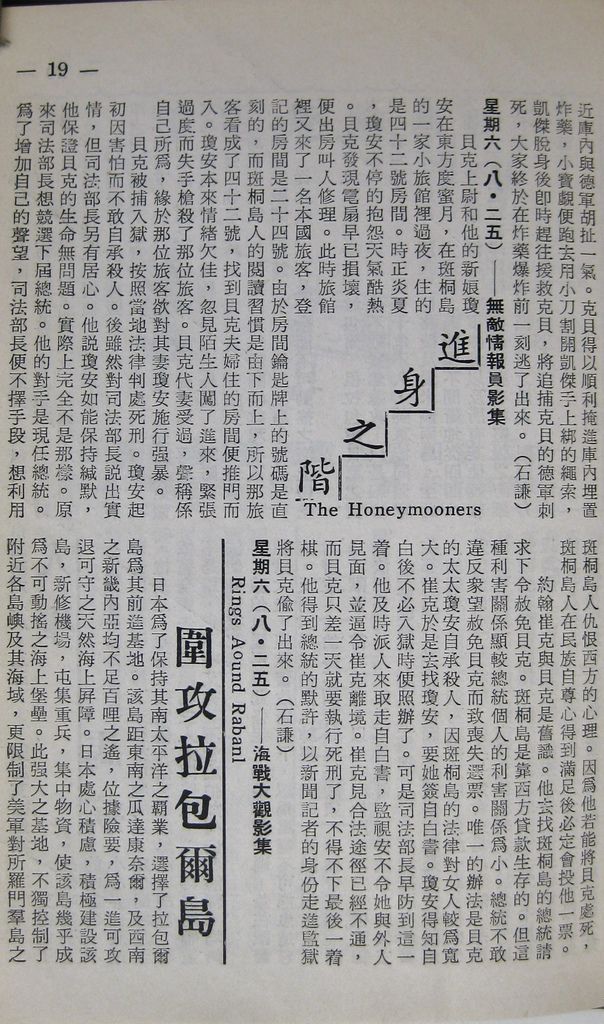 — 19 —
近庫內與德軍胡扯一氣。克貝得以順利掩進庫內埋置
炸藥,小寶覷便跑去用小刀割開凱傑手上綁的繩索,
凱傑脫身後卽時趕往援救克貝,將追捕克貝的德軍刺
死,大家終於在炸藥爆炸前一刻逃了出來。(石謙)
星期六(八·二五)——無敵情報員影集
進身之階
The Honeymooners
貝克上尉和他的新娘瓊
安在東方度蜜月,在斑桐島
的一家小旅館裡過夜,住的
是四十二號房間。時正炎夏
,瓊安不停的抱怨天氣酷熱
。貝克發現電扇早已損壞,
便出房叫人修理。此時旅館
裡又來了一名本國旅客,登
記的房間是二十四號。由於房間鑰匙牌上的號碼是直
刻的,而斑桐島人的閱讀習慣是由下而上,所以那旅
客看成了四十二號,找到貝克夫婦住的房間便推門而
入。瓊安本來情緒欠佳,忽見陌生人闖了進來,緊張
過度而失手槍殺了那位旅客。貝克代妻受過,聲稱係
自己所爲,緣於那位旅客欲對其妻瓊安施行强暴。
貝克被捕入獄,按照當地法律判處死刑。瓊安起
初因害怕而不敢自承殺人。後雖然對司法部長説出實
情,但司法部長另有居心。他説瓊安如能保持緘默,
他保證貝克的生命無問題。實際上完全不是那樣。原
來司法部長想競選下屆總統。他的對手是現任總統。
爲了增加自己的聲望,司法部長便不擇手段,想利用
斑桐島人仇恨西方的心理。因爲他若能將貝克處死,
斑桐島人在民族自尊心得到滿足後必定會投他一票。
約翰崔克與貝克是舊識。他去找斑桐島的總統請
求下令赦免貝克。斑桐島是靠西方貸款生存的。但這
種利害關係顯較總統個人的利害關係爲小。總統不敢
違反衆望赦免貝克而致喪失選票。唯一的辦法是貝克
的太太瓊安自承殺人,因斑桐島的法律對女人較爲寬
大。崔克於是去找瓊安,要她簽自白書。瓊安得知自
白後不必入獄時便照辦了。可是司法部長早防到這一
着。他及時派人來取走自白書,監視安不令她與外人
見面,並逼令崔克離境。崔克見合法途徑已經不通,
而貝克只差一天就要執行死刑了,不得不下最後一着
棋。他得到總統的默許,以新聞記者的身份走進監獄
將貝克偸了出來。(石謙)
星期六(八·二五)——海戰大觀影集
Rings Aound Rabanl
圍攻拉包爾島
日本爲了保持其南太平洋之覇業,選擇了拉包爾
島爲其前進基地。該島距東南之瓜達康奈爾,及西南
之新畿內亞均不足百哩之遙,位據險要,爲一進可攻
退可守之天然海上屛障。日本處心積慮,積極建設該
島,新修機場,屯集重兵,集中物資,使該島幾乎成
爲不可動搖之海上堡壘。此强大之基地,不獨控制了
附近各島嶼及其海域,更限制了美軍對所羅門羣島之